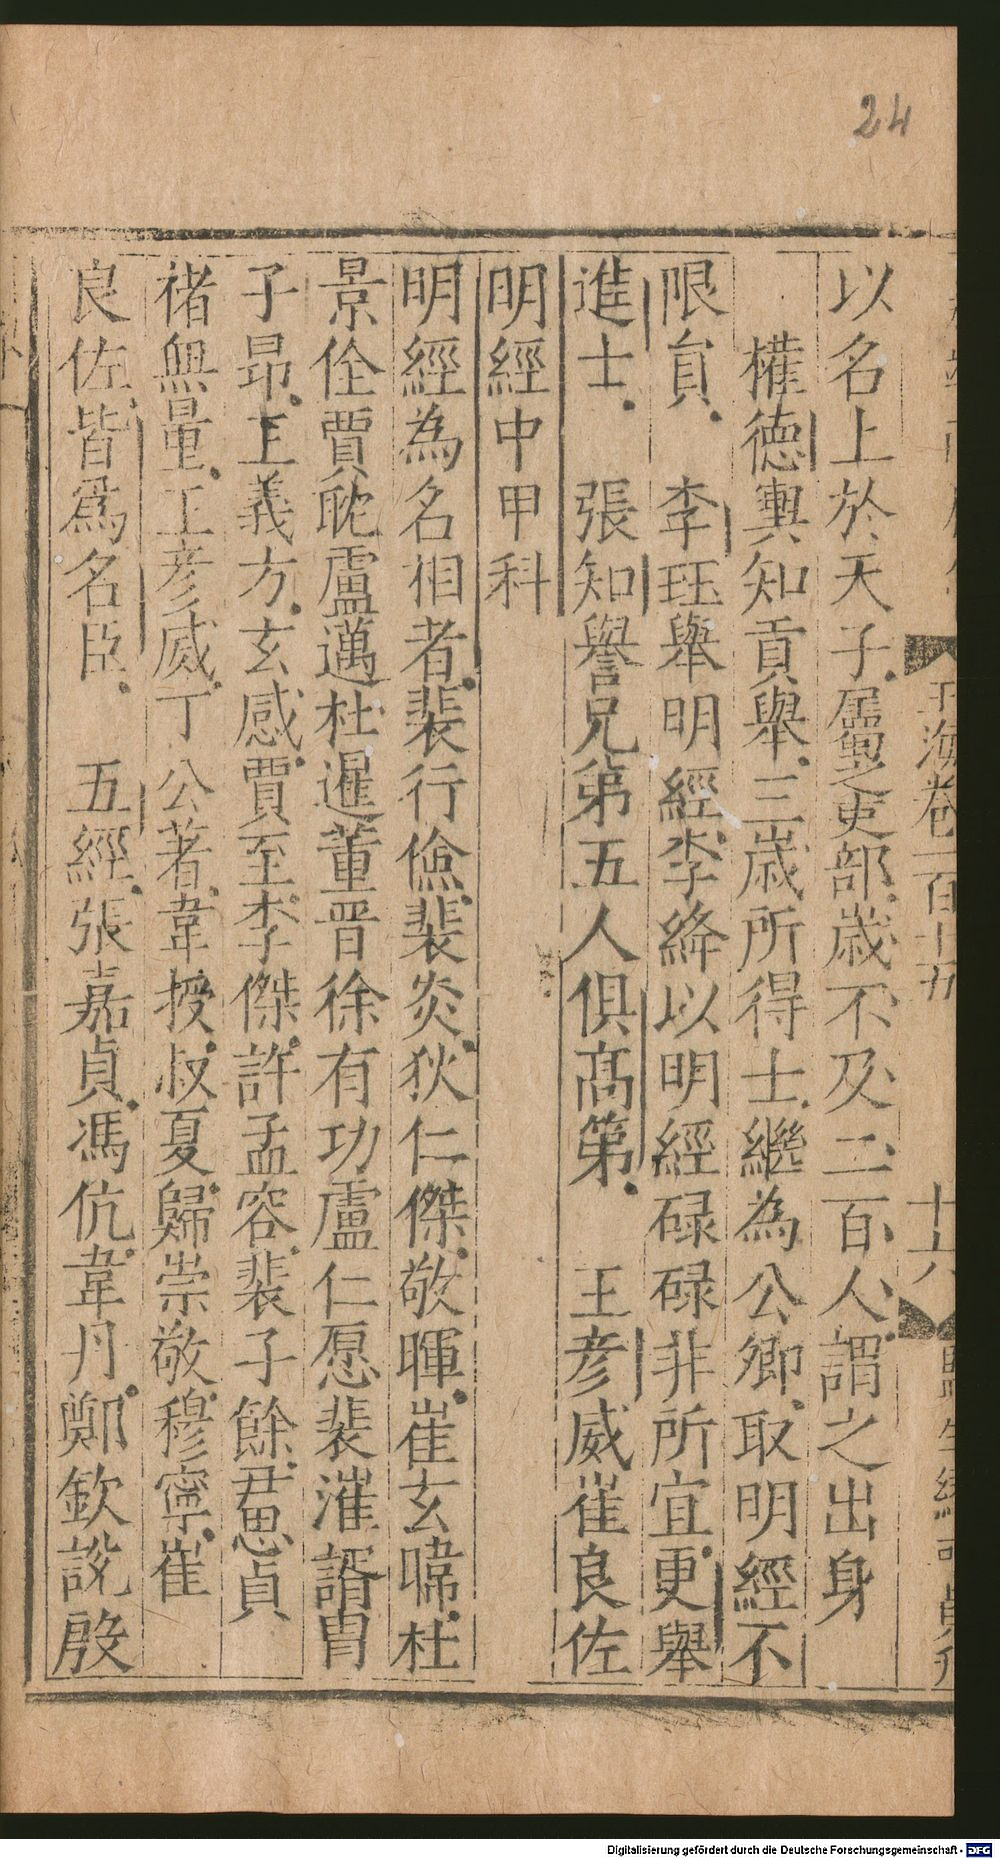 24
玉海卷一百十五
十六
以名上於天子屬之吏部歲不及二百人謂之出身
權德輿知貢舉三歲所得士繼為公卿取明經不
限員 李珏舉明經李絳以明經碌碌非所宜更舉
進士 張知謇兄弟五人俱高第 王彥威崔良佐
明經中甲科
明經為名相者裴行儉裴炎狄仁傑敬暉崔玄暐杜
景佺賈耽盧邁杜暹董晋徐有功盧仁愿裴漼諝冑
子昂王義方玄感賈至李傑許孟容裴子餘君愚貞
褚無量王彥威丁公著韋授叔夏歸崇敬穆寧崔
良佐皆爲名臣 五經張嘉貞馮伉韋丹鄭欽說殷
Digitalisierung gefördert durch die Deutsche Forschungsgemeinschaft - DFG